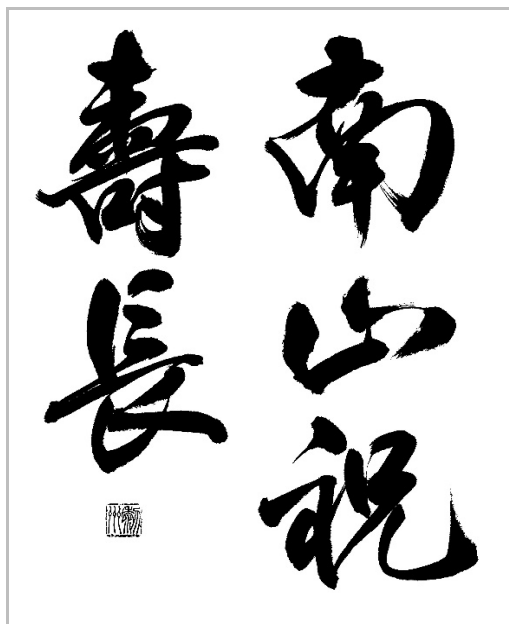 南山祝
壽長